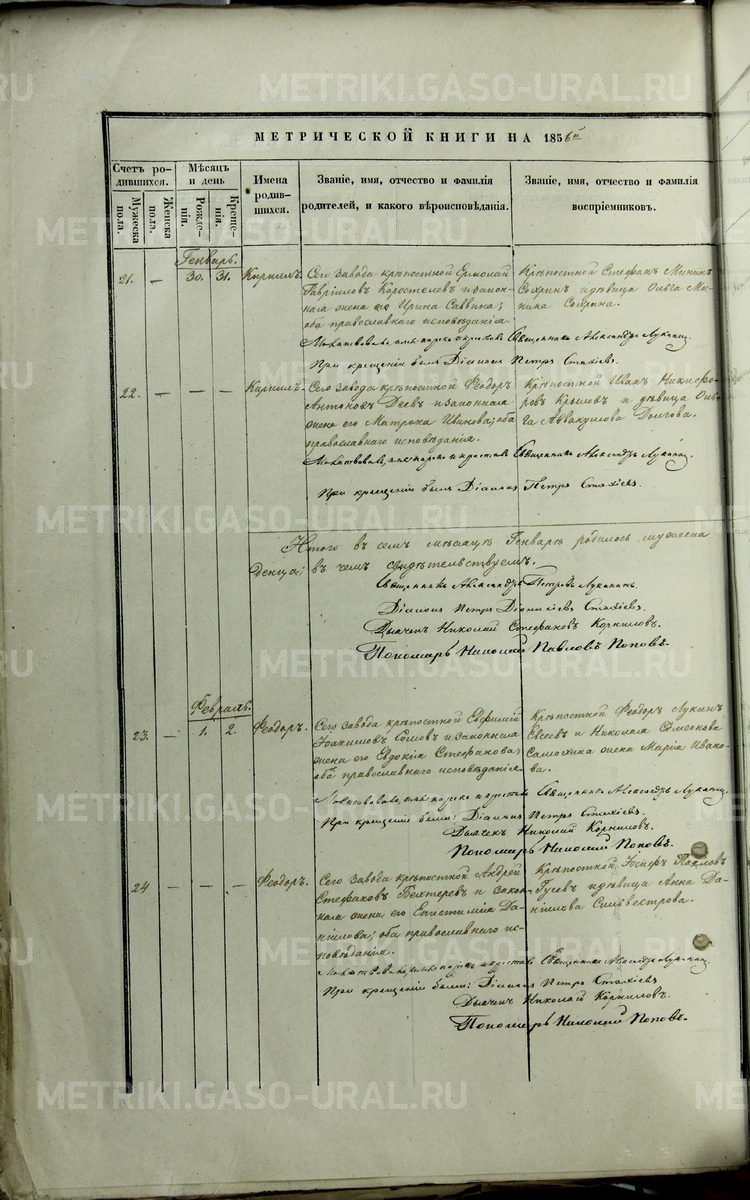 МЕТРИЧЕСКОЙ КНИГИ НА 1856й
Счетъ родившихся.
Мужеска пола.
Женска пола.
Мѣсяцъ и день
Рожденія.
Крещенія.
Имена родившихся.
Званіе, имя, отчество и фамилія родителей, и какого вѣроисповѣданія.
Званіе, имя, отчество и фамилія воспріемниковъ.
Генварь.
21. — 30. 31. Кириллъ.
Сего завода крѣпостной Ермолай
Гавріиловъ Коростелевъ и закон-
ная жена его Ирина Саввина;
оба православнаго исповѣданія.
Крѣпостной Стефанъ Мининъ
Сохринъ и дѣвица Ольга Ми-
нина Сохрина.
Молитвовалъ, имя нарекъ и крестилъ Священникъ Александръ Луканинъ.
При крещеніи былъ Діаконъ Петръ Стахіевъ.
22. — — — Кириллъ.
Сего завода крѣпостной Феодоръ
Антоновъ Деевъ и законная
жена его Матрона Иванова; оба
православнаго исповѣданія.
Крѣпостной Иванъ Никифо-
ровъ Крыловъ и дѣвица Оль-
га Аввакумова Долгова.
Молитвовалъ, имя нарекъ и крестилъ Священникъ Александръ Луканинъ.
При крещеніи былъ Діаконъ Петръ Стахіевъ.
Итого въ семъ мѣсяцѣ Генварѣ родилось мужеска
въ чемъ свидѣтельствуемъ.
Священникъ Александръ Петровъ Луканинъ.
Діаконъ Петръ Діонисіевъ Стахіевъ.
Дьячекъ Николай Стефановъ Корниловъ.
Пономарь Николай Павловъ Поповъ.
Февраль.
23. — 1. 2. Феодоръ.
Сего завода крѣпостной Евфимій
Іоакимовъ и законная
жена его Евдокія Стефанова;
оба православнаго исповѣданія.
Крѣпостной Феодоръ Лукинъ
Евсеевъ и Николая Симеонова
Самохина жена Марія Ивано-
ва.
Молитвовалъ, имя нарекъ и крестилъ Священникъ Александръ Луканинъ.
При крещеніи были: Діаконъ Петръ Стахіевъ.
Дьячекъ Николай Корниловъ.
Пономарь Николай Поповъ.
24 — — — Феодоръ.
Сего завода крѣпостной Андрей
Стефановъ Бехтеревъ и закон-
ная жена его Епистимія Да-
ніилова; оба православнаго ис-
повѣданія.
Крѣпостной Іосифъ Павловъ
Гусевъ и дѣвица Анна Да-
ніилова Сильвестрова.
Молитвовалъ, имя нарекъ и крестилъ Священникъ Александръ Луканинъ.
При крещеніи были: Діаконъ Петръ Стахіевъ
Дьячекъ Николай Корниловъ.
Пономарь Николай Поповъ.
METRIKI.GASO-URAL.RU